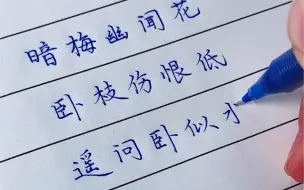 暗梅幽闻花
卧枝伤恨低
遥问卧似